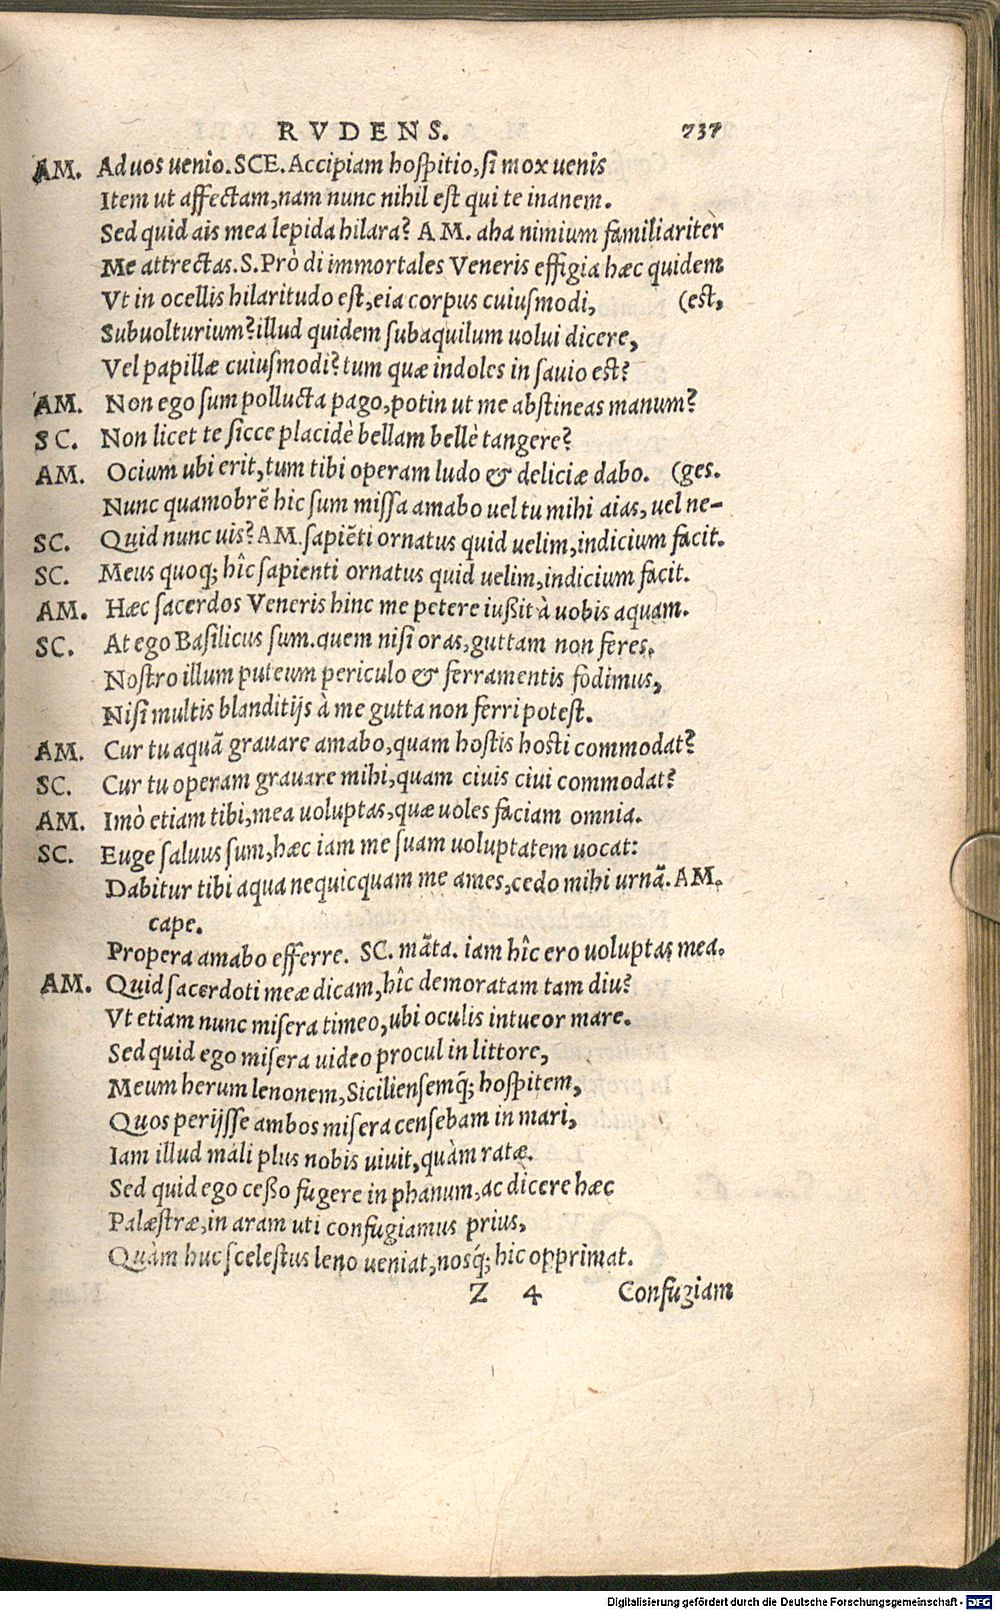 RVDENS. 737
AM. Ad uos uenio. SCE. Accipiam hoſpitio, ſi mox uenis
Item ut affectam, nam nunc nihil eſt qui te inanem.
Sed quid ais mea lepida hilara? AM. aha nimium familiariter
Me attrectas. S. Prò di immortales Veneris effigia hæc quidem
Vt in ocellis hilaritudo eſt, eia corpus cuiuſmodi, (eſt,
Subuolturium? illud quidem ſubaquilum uolui dicere,
Vel papillæ cuiuſmodi? tum quæ indoles in ſauio eſt?
AM. Non ego ſum pollucta pago, potin ut me abſtineas manum?
SC. Non licet te ſicce placidè bellam bellè tangere?
AM. Ocium ubi erit, tum tibi operam ludo & deliciæ dabo. (ges.
Nunc quamobrē hic ſum miſſa amabo uel tu mihi aias, uel ne-
SC. Quid nunc uis? AM. ſapiēti ornatus quid uelim, indicium facit.
SC. Meus quoq; hîc ſapienti ornatus quid uelim, indicium facit.
AM. Hæc ſacerdos Veneris hinc me petere iußit à uobis aquam.
SC. At ego Baſilicus ſum. quem niſi oras, guttam non feres.
Noſtro illum puteum periculo & ferramentis fodimus,
Niſi multis blanditijs à me gutta non ferri poteſt.
AM. Cur tu aquā grauare amabo, quam hoſtis hoſti commodat?
SC. Cur tu operam grauare mihi, quam ciuis ciui commodat?
AM. Imò etiam tibi, mea uoluptas, quæ uoles faciam omnia.
SC. Euge ſaluus ſum, hæc iam me ſuam uoluptatem uocat:
Dabitur tibi aqua nequicquam me ames, cedo mihi urnā. AM.
cape.
Propera amabo efferre. SC. māta. iam hîc ero uoluptas mea.
AM. Quid ſacerdoti meæ dicam, hîc demoratam tam diu?
Vt etiam nunc miſera timeo, ubi oculis intueor mare.
Sed quid ego miſera uideo procul in littore,
Meum herum lenonem, Sicilienſemq́; hoſpitem,
Quos perijſſe ambos miſera cenſebam in mari,
Iam illud mali plus nobis uiuit, quàm ratæ.
Sed quid ego ceßo fugere in phanum, ac dicere hæc
Palæſtræ, in aram uti confugiamus prius,
Quàm huc ſceleſtus leno ueniat, nosq́; hic opprimat.
Z 4 Confugiam
Digitalisierung gefördert durch die Deutsche Forschungsgemeinschaft - DFG